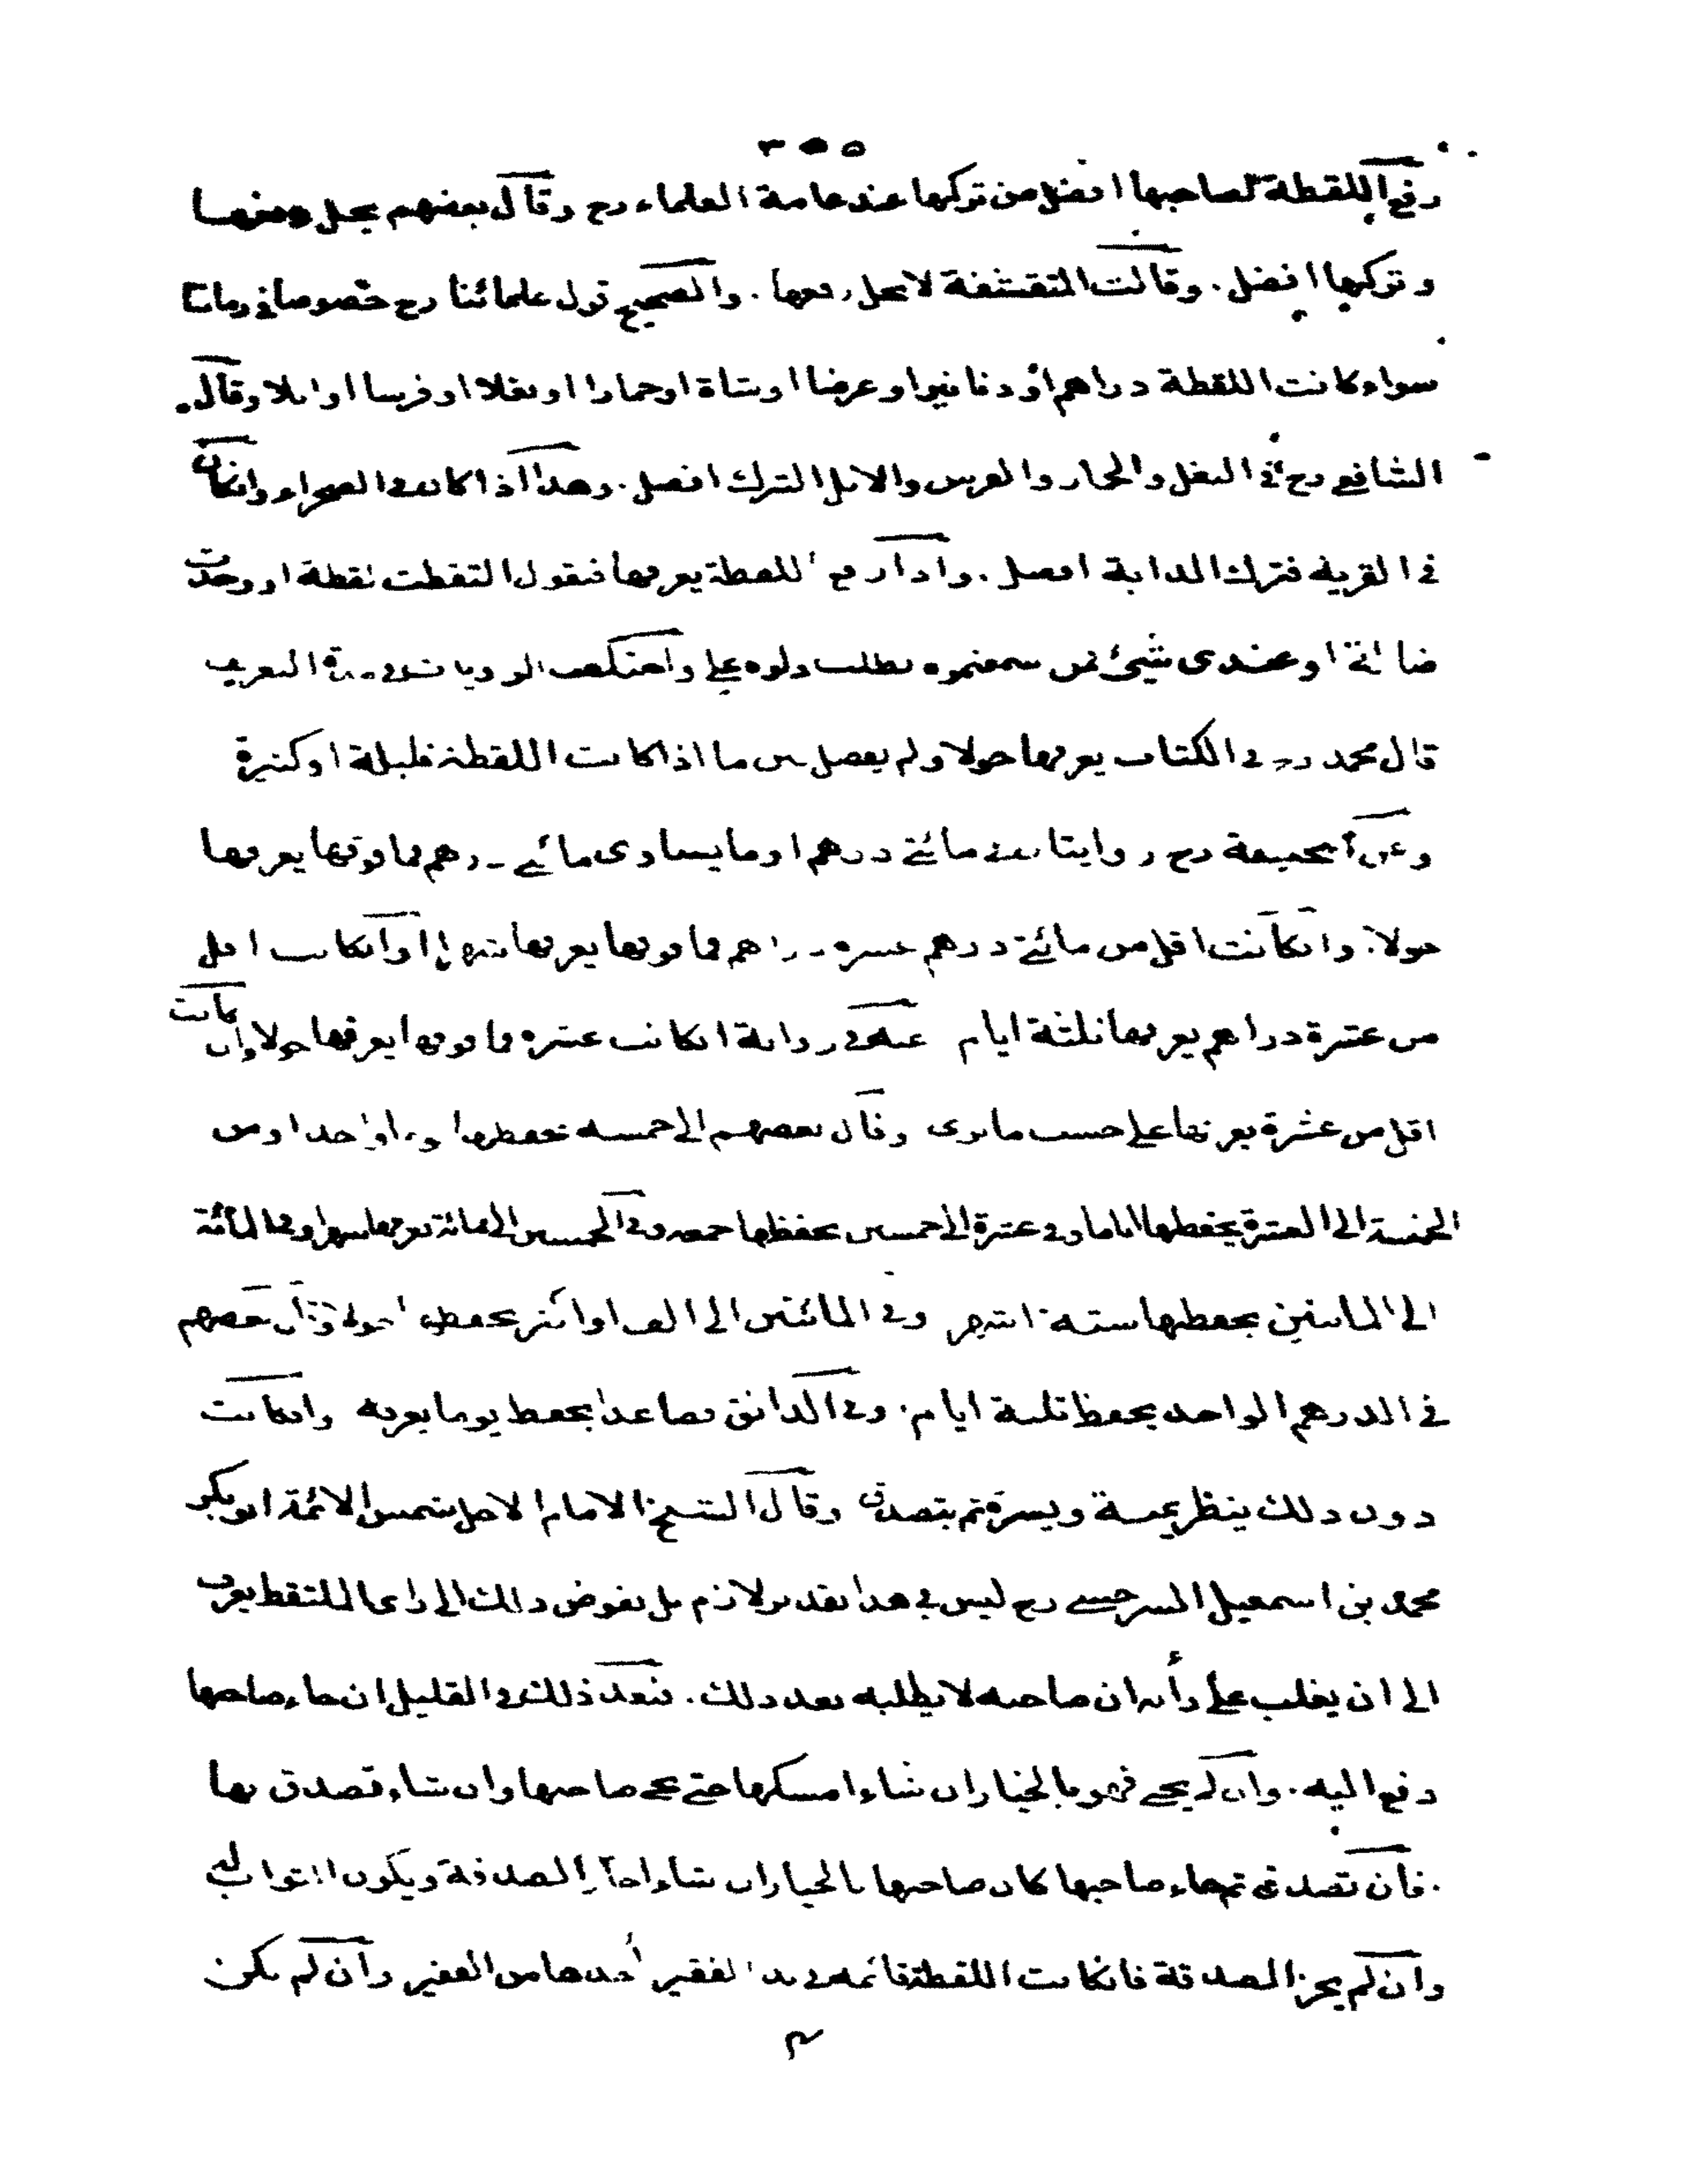 ٣٠٥
رفع اللقطة لصاحبها افضل من تركها عند عامة العلماء رح وقال بعضهم يحل رفعها
وتركها افضل . وقالت المتقشفة لا يحل رفعها . والصحيح قول علمائنا رح خصوصا في زماننا
سواء كانت اللقطة دراهم او دنانير او عرضا او شاة او حمارا او بغلا او فرسا او ابلا وقال
الشافعي رح في البغل والحمار والفرس والابل الترك افضل . وهذا اذا كان في الصحراء وانكان
في القرية فترك الدابة افضل . واذا رفع اللقطة يعرفها فيقول التقطت لقطة او وجدت
ضالة او عندي شيئ فمن سمعتموه يطلب دلوه علي واختلفت الروايات في مدة التعريف
قال محمد رح في الكتاب يعرفها حولا ولم يفصل بين ما اذا كانت اللقطة قليلة او كثيرة
وعن ابيحنيفة رح روايتان في مائتي درهم او ما يساوي مائتي درهم فما فوقها يعرفها
حولا . وانكانت اقل من مائتي درهم عشرة دراهم فما فوقها يعرفها شهرا وانكانت اقل
من عشرة دراهم يعرفها ثلثة ايام عنه في رواية انكانت عشرة فما فوقها يعرفها حولا وان كانت
اقل من عشرة يعرفها على حسب ما يرى وقال بعضهم الى خمسة يحفظها يوما واحدا ومن
الخمسة الى العشرة يحفظها اياما وفي عشرة الى خمسين يحفظها جمعة وفي الخمسين الى مائة يعرفها شهرا وفي المائة
الى المائتين يحفظها ستة اشهر وفي المائتين الى الف او اكثر يحفظها حولا وقال بعضهم
في الدرهم الواحد يحفظ ثلثة ايام . وفي الدانق فصاعدا يحفظ يوما يعرفه وانكانت
دون ذلك ينظر يمنة ويسرة ثم يتصدق وقال الشيخ الامام الاجل شمس الائمة ابو بكر
محمد بن اسمعيل السرخسي رح ليس في هذا تقدير لازم بل يفوض ذلك الى راي الملتقط يعرف
الى ان يغلب على رأيه ان صاحبه لا يطلبه بعد ذلك . فبعد ذلك في القليل ان جاء صاحبها
دفع اليه . وان لم يجي فهو بالخيار ان شاء امسكها حتى يجي صاحبها وان شاء تصدق بها
. فان تصدق ثم جاء صاحبها كان صاحبها بالخيار ان شاء اجاز الصدقة ويكون الثواب له
وان لم يجز الصدقة فانكانت اللقطة قائمة في يد الفقير أخذها من الفقير وان لم تكن